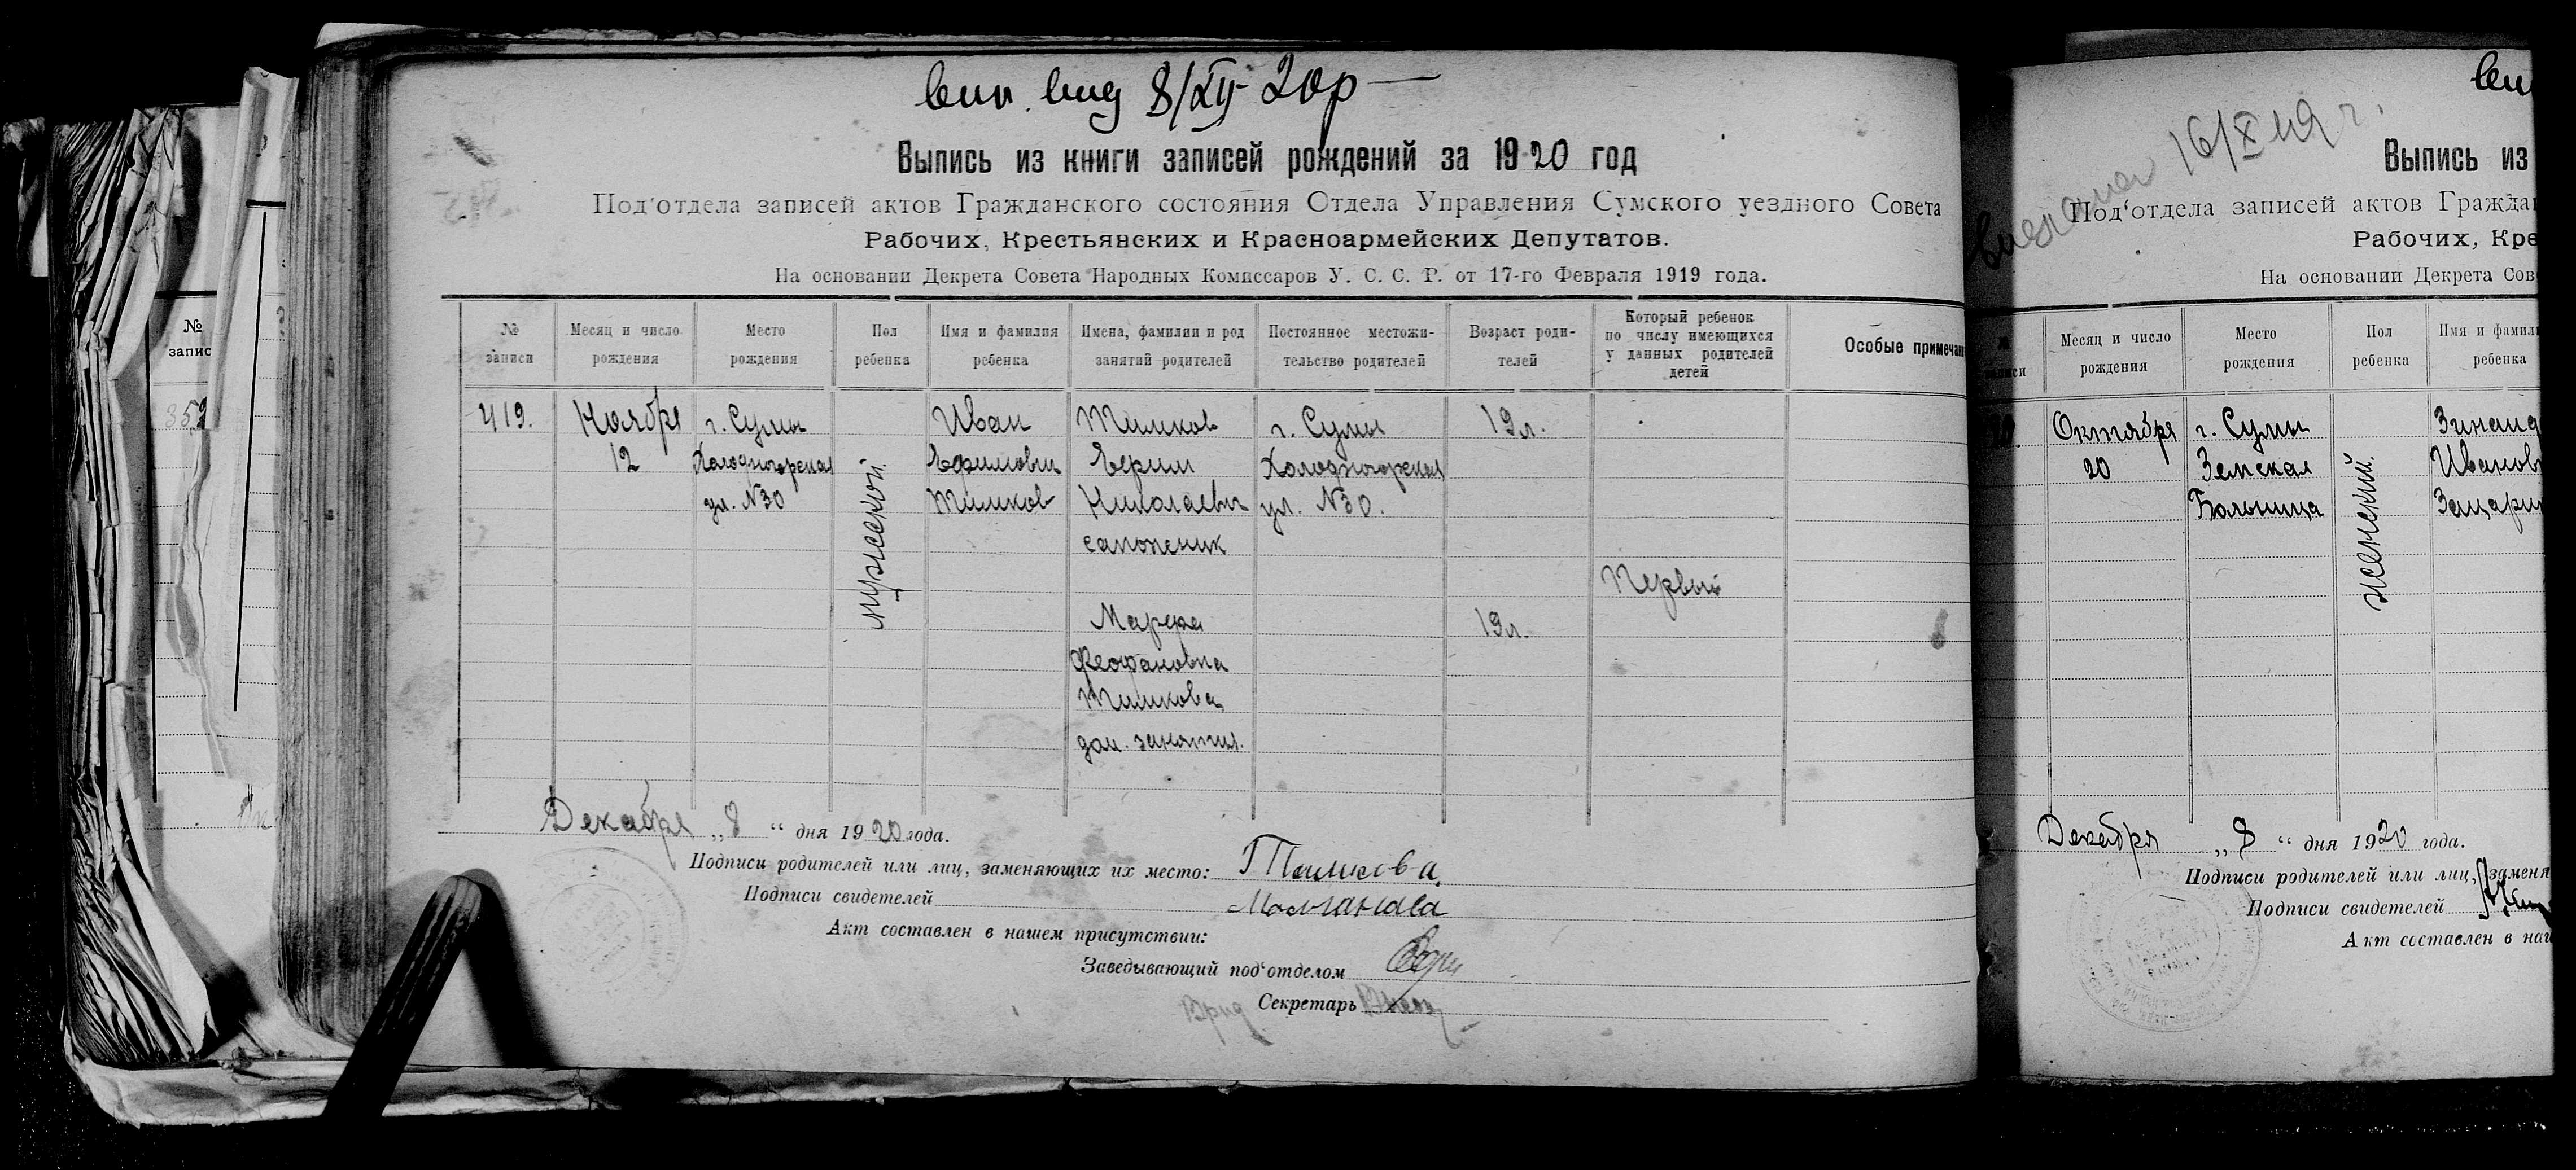 вид 8/XII 20р
Выпись из книги записей рождений за 1920 год
Под'отдела записей актов Гражданского состояния Отдела Управления Сумского уездного Совета
Рабочих, Крестьянских и Красноармейских Депутатов.
На основании Декрета Совета Народных Комиссаров У. С. С. Р. от 17-го Февраля 1919 года.
№ записи
Месяц и число рождения
Место рождения
Пол ребенка
Имя и фамилия ребенка
Имена, фамилии и род занятий родителей
Постоянное местожительство родителей
Возраст родителей
Который ребенок по числу имеющихся у данных родителей детей
Особые примечан
419.
Ноября
12
г. Сумы
Холодногорская
ул. №30
мужеской.
Иван
Ефимович
Тимков
Тимков
Ефим
Николаевич
сапожник
Марфа
Феофановна
Тимкова
дом. занятия.
г. Сумы
Холодногорская
ул. №30.
19л.
19л.
Первый
Декабря „8“ дня 1920 года.
Подписи родителей или лиц, заменяющих их место: Тимкова
Подписи свидетелей Молчанова
Акт составлен в нашем присутствии:
Заведывающий под'отделом
Врид Секретарь
16/X 49 г.
Выпись из
Под'отдела записей актов Граждан
Рабочих, Кре
На основании Декрета Сов
Месяц и число рождения
Место рождения
Пол ребенка
Имя и фамили
ребенка
Октября
20
г. Сумы
Земская
Больница
женский.
Зинаид
Иванов
Декабря „8“ дня 1920 года.
Подписи родителей или лиц, заменя
Подписи свидетелей
Акт составлен в наш
№
запис